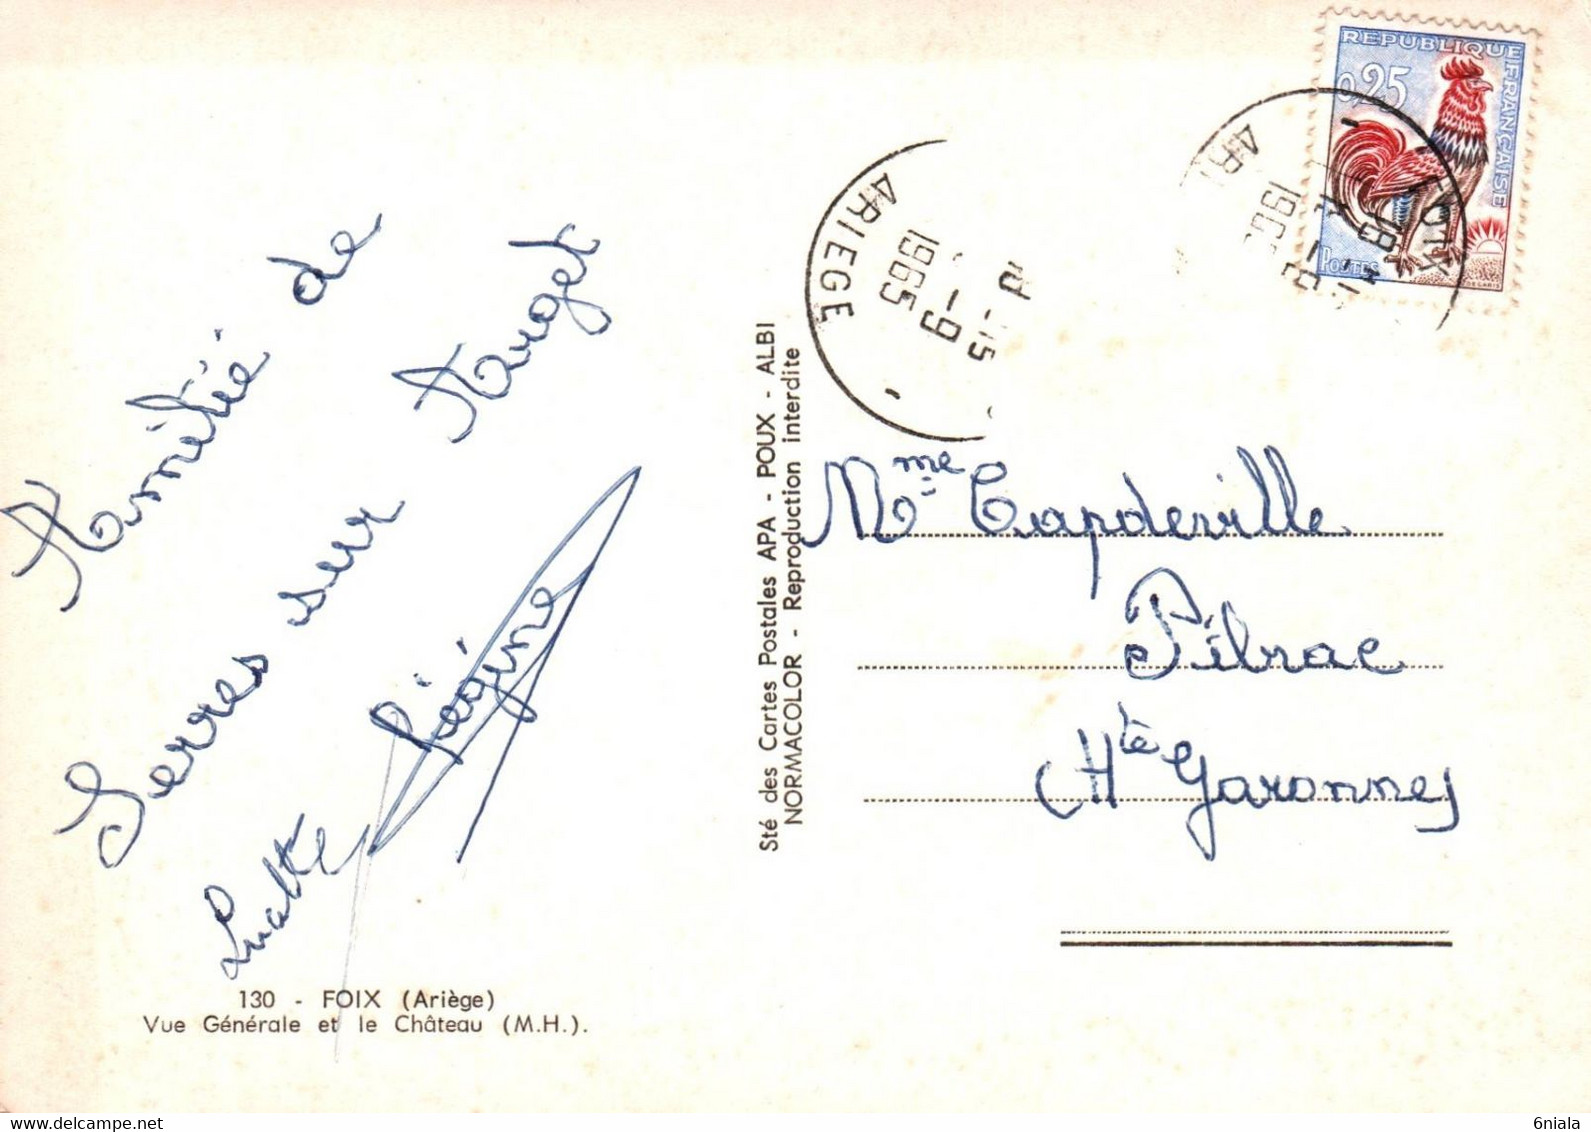 Amitié de
Serres sur Arget
Régine
130 - FOIX (Ariège)
Vue Générale et le Château (M.H.).
Sté des Cartes Postales APA - POUX - ALBI
NORMACOLOR - Reproduction interdite
ARIEGE
1965
FOIX
REPUBLIQUE FRANÇAISE
0,25
POSTES
DECARIS
Mme Capdeville
Pibrac
(Hte Garonne)
www.delcampe.net
6niala